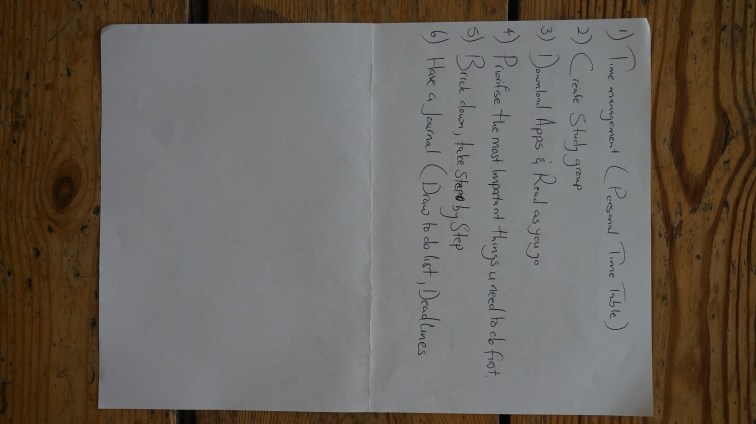 1) Time management ( Personal Time Table )
2) Create Study group
3) Download Apps & Read as you go
4) Prioritise the most important things u need to do first.
5) Brick down, take Step by Step
6) Have a Journal ( Draw to do list, Deadlines